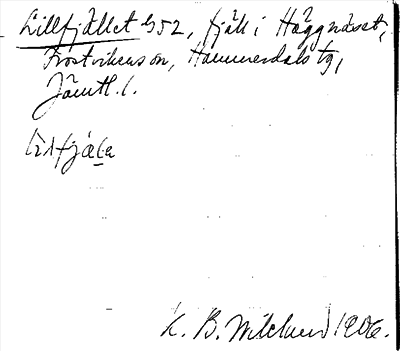 Lillfjället 952, fjäll i Häggnäset,
Frostvikens sn, Hammerdals tg,
Jämtl. l.
K. B. Wiklund 1906.